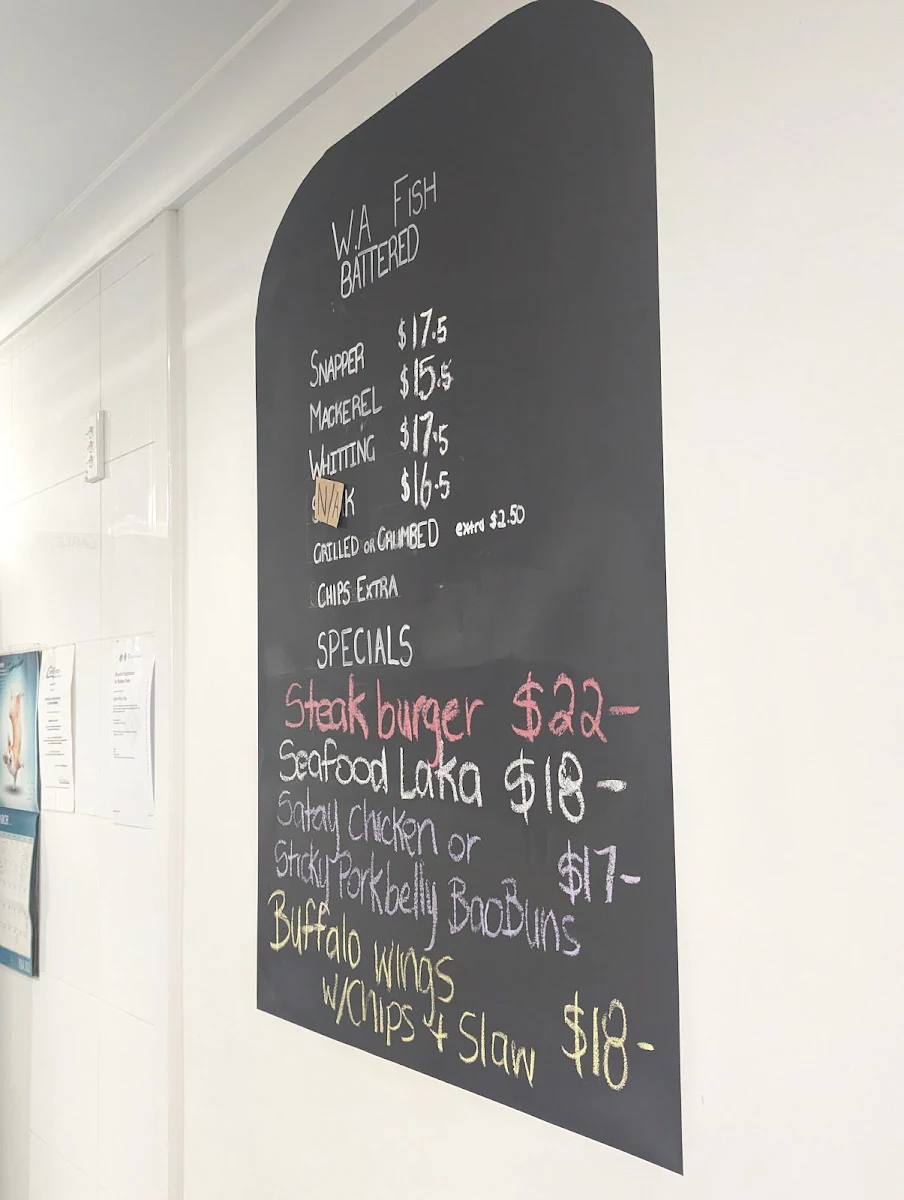 W.A FISH
BATTERED
SNAPPER $17.5
MACKEREL $15.5
WHITTING $17.5
N/A K $16.5
GRILLED OR CRUMBED extra $2.50
CHIPS EXTRA
SPECIALS
Steak burger $22-
Seafood Laka $18-
Satay chicken or
Sticky Porkbelly BaoBuns $17-
Buffalo wings
w/Chips + Slaw $18-